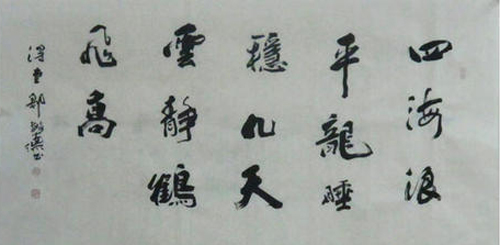 四海浪
平龍睡
穩九天
雲靜鶴
飛高